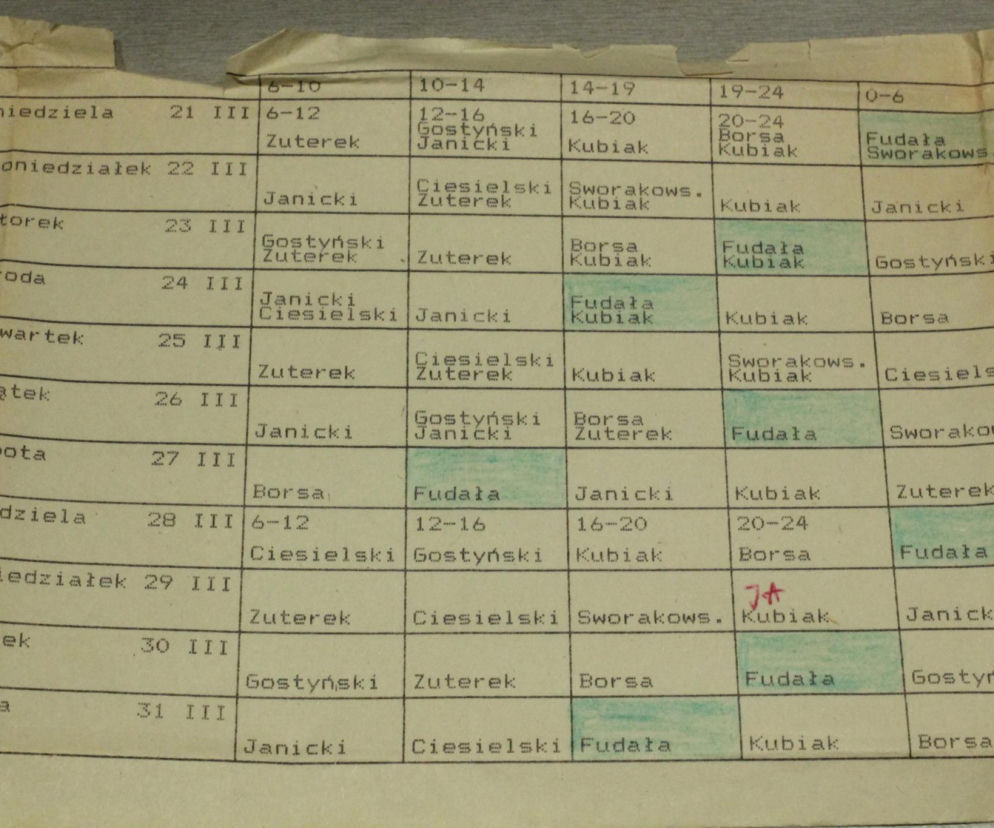 6-10 10-14 14-19 19-24 0-6
niedziela 21 III 6-12 12-16 16-20 20-24
Gostyński Borsa Fudała
Zuterek Janicki Kubiak Kubiak Sworakows
oniedziałek 22 III Ciesielski Sworakows.
Janicki Zuterek Kubiak Kubiak Janicki
torek 23 III Gostyński Borsa Fudała
Zuterek Zuterek Kubiak Kubiak Gostyński
roda 24 III Janicki Fudała
Ciesielski Janicki Kubiak Kubiak Borsa
wartek 25 III Ciesielski Sworakows.
Zuterek Zuterek Kubiak Kubiak Ciesiels
ątek 26 III Gostyński Borsa
Janicki Janicki Zuterek Fudała Sworako
ota 27 III
Borsa Fudała Janicki Kubiak Zuterek
dziela 28 III 6-12 12-16 16-20 20-24
Ciesielski Gostyński Kubiak Borsa Fudała
iedziałek 29 III JA
Zuterek Ciesielski Sworakows. Kubiak Janick
ek 30 III
Gostyński Zuterek Borsa Fudała Gostyń
a 31 III
Janicki Ciesielski Fudała Kubiak Borsa